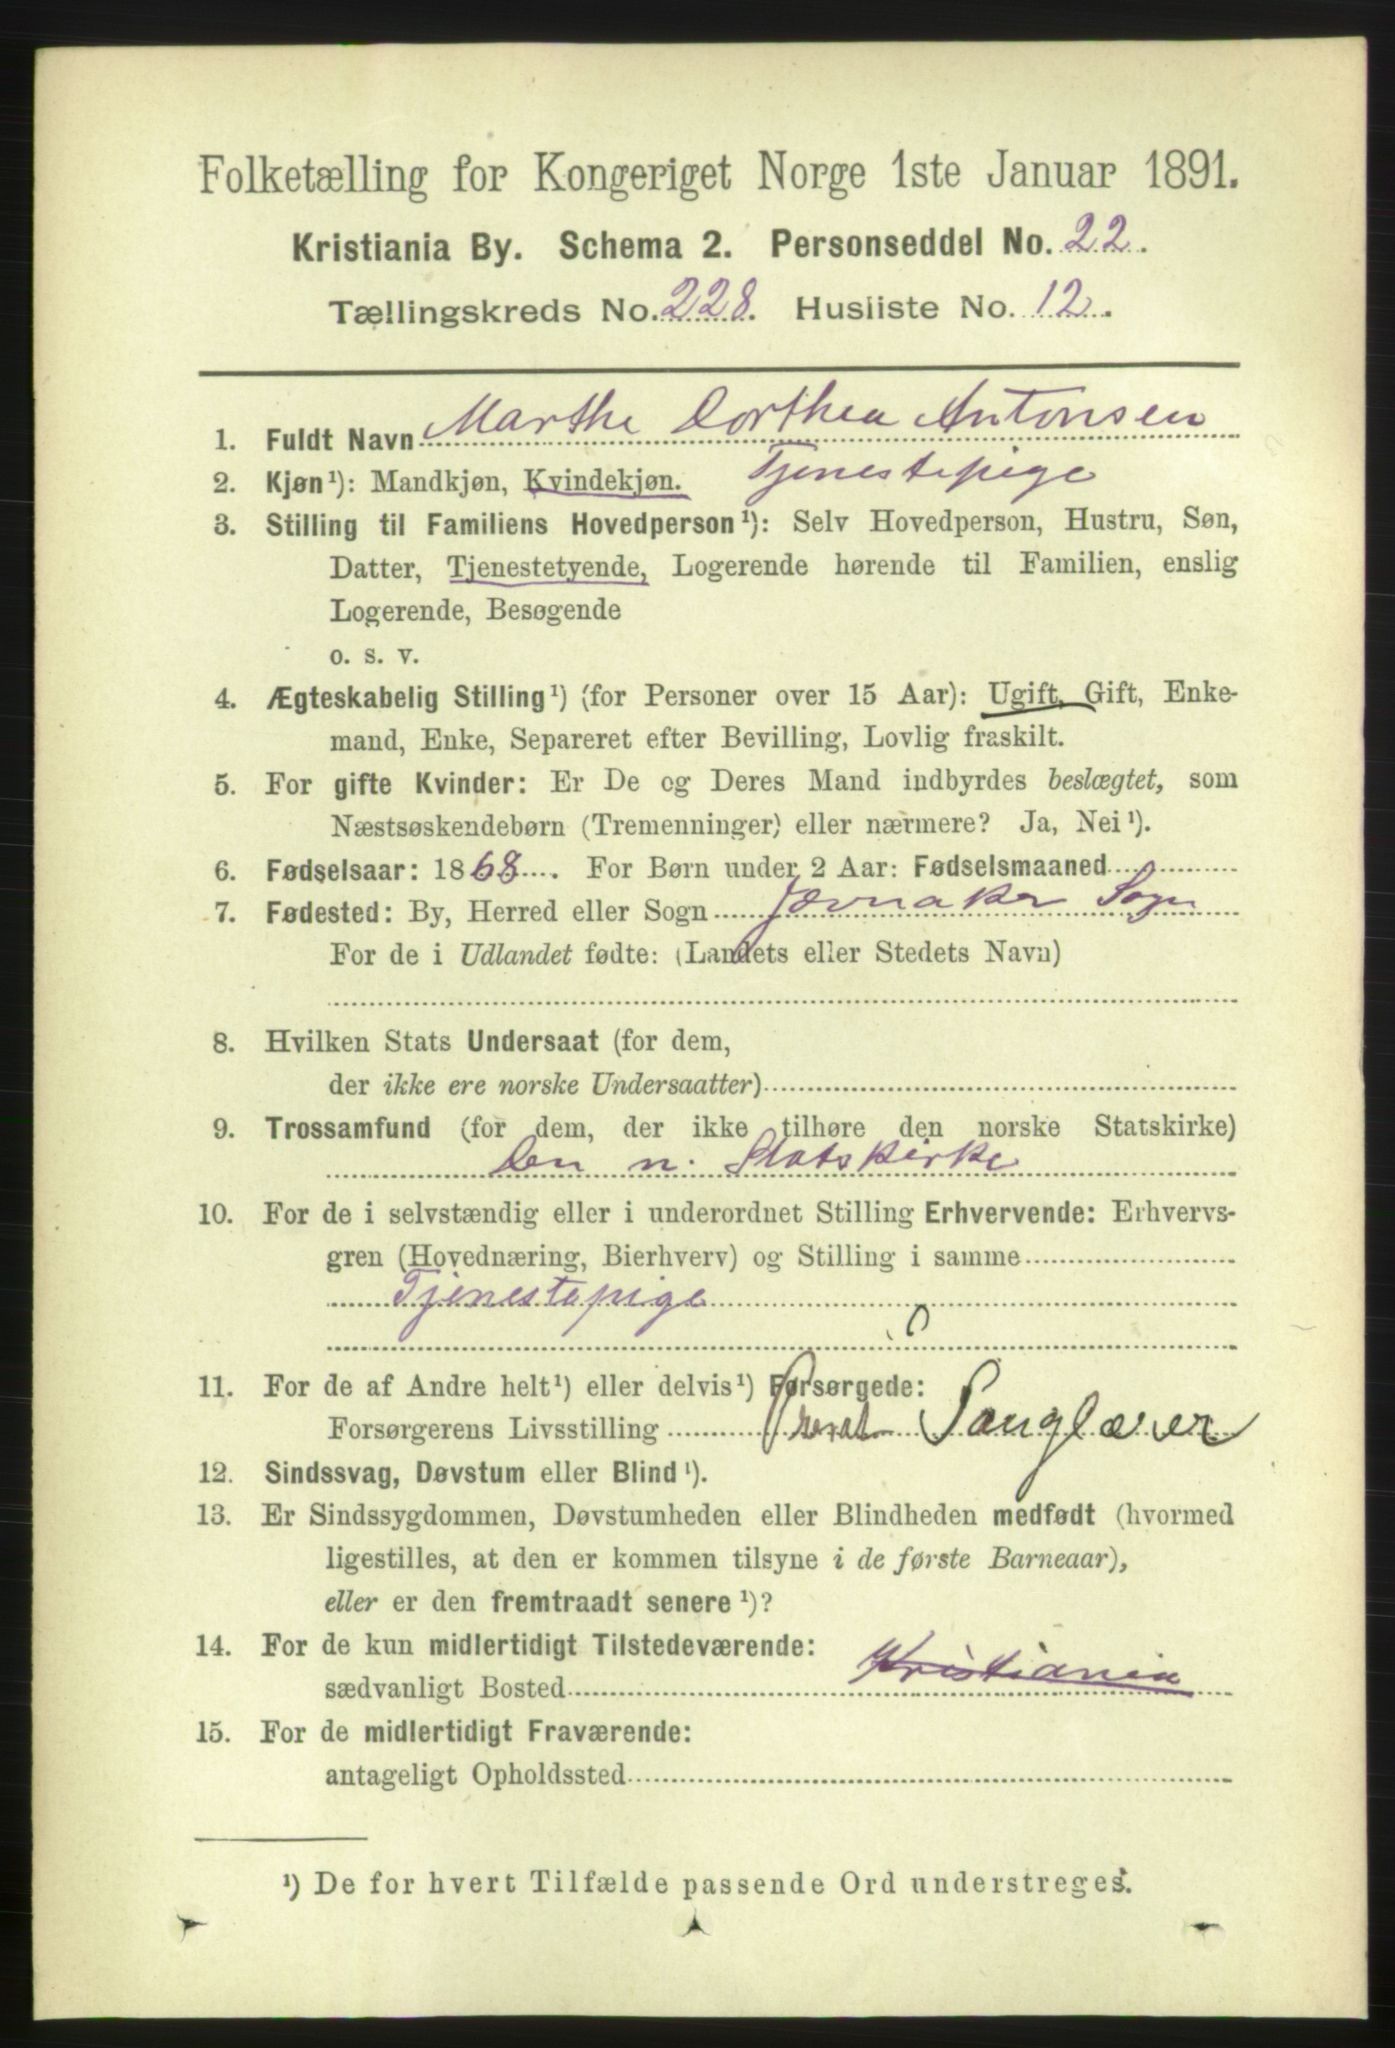 Folketælling for Kongeriget Norge 1ste Januar 1891.
Kristiania By. Schema 2. Personseddel No. 22.
Tællingskreds No. 228. Husliste No. 12.
1. Fuldt Navn Marthe Dorthea Antonsen
2. Kjøn¹): Mandkjøn, Kvindekjøn. Tjenestepige
3. Stilling til Familiens Hovedperson¹): Selv Hovedperson, Hustru, Søn,
Datter, Tjenestetyende, Logerende hørende til Familien, enslig
Logerende, Besøgende
o. s. v.
4. Ægteskabelig Stilling¹) (for Personer over 15 Aar): Ugift, Gift, Enke-
mand, Enke, Separeret efter Bevilling, Lovlig fraskilt.
5. For gifte Kvinder: Er De og Deres Mand indbyrdes beslægtet, som
Næstsøskendebørn (Tremenninger) eller nærmere? Ja, Nei¹).
6. Fødselsaar: 1868. For Børn under 2 Aar: Fødselsmaaned
7. Fødested: By, Herred eller Sogn Jævnaker Sogn
For de i Udlandet fødte: (Landets eller Stedets Navn)
8. Hvilken Stats Undersaat (for dem,
der ikke ere norske Undersaatter)
9. Trossamfund (for dem, der ikke tilhøre den norske Statskirke)
Den n. Statskirke
10. For de i selvstændig eller i underordnet Stilling Erhvervende: Erhvervs-
gren (Hovednæring, Bierhverv) og Stilling i samme
Tjenestepige
11. For de af Andre helt¹) eller delvis¹) Forsørgede:
Forsørgerens Livsstilling Privat Sanglærer
12. Sindssvag, Døvstum eller Blind¹).
13. Er Sindssygdommen, Døvstumheden eller Blindheden medfødt (hvormed
ligestilles, at den er kommen tilsyne i de første Barneaar),
eller er den fremtraadt senere¹)?
14. For de kun midlertidigt Tilstedeværende:
sædvanligt Bosted Kristiania
15. For de midlertidigt Fraværende:
antageligt Opholdssted
¹) De for hvert Tilfælde passende Ord understreges.